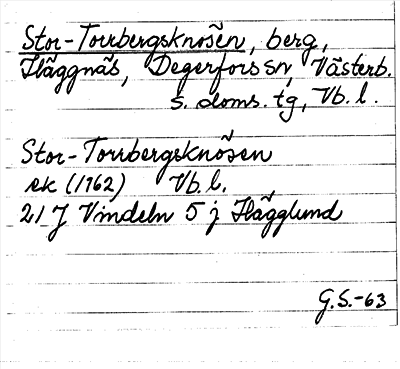 Stor-Torrbergsknösen, berg,
Häggnäs, Degerfors sn, Västerb.
s. doms. tg, Vb. l.
Stor-Torrbergsknösen
ek (1962) Vb. l.
21 J Vindeln 5 j Hägglund
G.S.-63